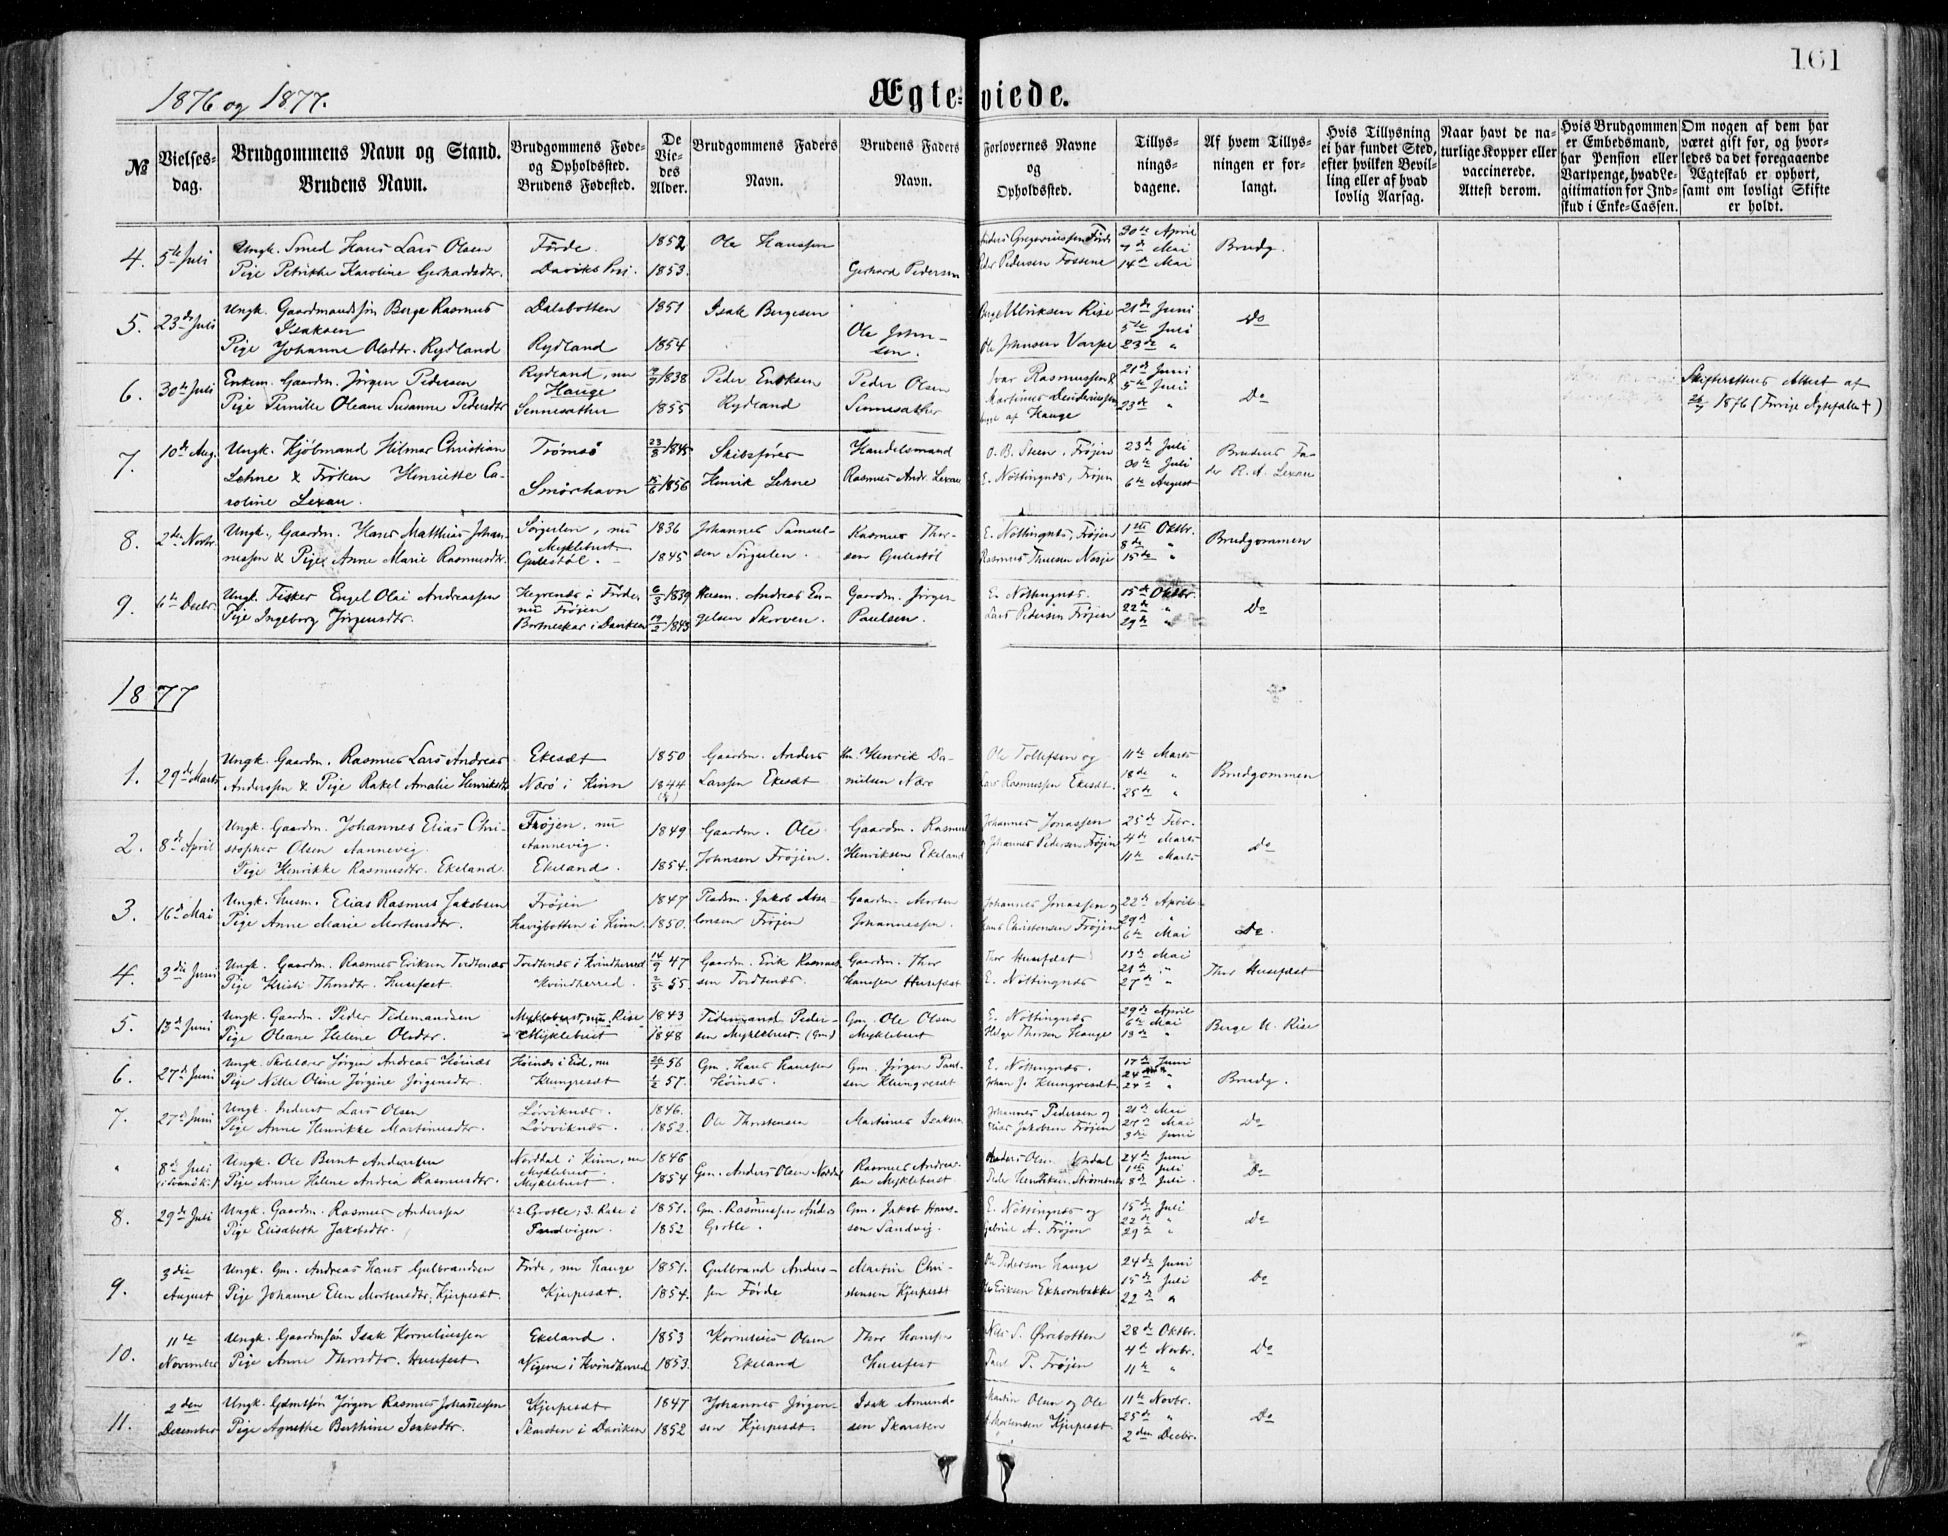 161
1876 og 1877.
Ægteviede.
№
Vielses-
dag.
Brudgommens Navn og Stand.
Brudens Navn.
Brudgommens Føde-
og Opholdssted.
Brudens Fødested.
De
Vie-
des
Alder.
Brudgommens Faders
Navn.
Brudens Faders
Navn.
Forlovernes Navne
og
Opholdssted.
Tillys-
nings-
dagene.
Af hvem Tillys-
ningen er for-
langt.
Hvis Tillysning
ei har fundet Sted,
efter hvilken Bevil-
ling eller af hvad
lovlig Aarsag.
Naar havt de na-
turlige Kopper eller
vaccinerede.
Attest derom.
Hvis Brudgommen
er Embedsmand,
har Pension eller
Vartpenge, hvad Le-
gitimation for Ind-
skud i Enke-Cassen.
Om nogen af dem har
været gift for, og hvor-
ledes da det foregaaende
Ægteskab er ophørt,
samt om lovligt Skifte
er holdt.
4. 5te Juli
Ungk. Smed Hans Lars Olsen
Pige Petrikke Karoline Gerhardsdtr.
Førde.
Daviks Prsj.
1852
1853.
Ole Hanssen
Gerhard Pedersen
Anders Gregeriussen Førde
Peder Pedersen Fossene
30te April
7de Mai
14de Mai
Brudg.
5. 23de Juli
Ungk. Gaardmandssøn Berge Rasmus
Isaksen
Pige Johanne Olsdtr. Rydland
Dalsbotten
Rydland
1851
1854
Isak Bergesen
Ole John-
sen.
Berge Ulriksen Rise
Ole Johnsen Varpe
21de Juni
5te Juli
23de "
Do
6. 30te Juli
Enkem. Gaardm. Jørgen Pedersen
Pige Pernille Oleane Susanne Pedersdtr
Rydland, nu
Hauge
Sennesæther
1838
1855
Peder Eriksen
Rydland
Peder Olsen
Sennesæther
Ivar Rasmussen &
Martinus
begge af Hauge
21de Juni
5te Juli
23de "
Do
Skifterettens Attest af
1876 (Forrige Ægtefælle †)
7. 10de Aug.
Ungk. Kjøbmand Hilmar Christian
Lehne & Frøken Henriette Ca-
roline Lexau.
Tromsø
Smørhavn
23/3 1845
15/6 1856
Skibsfører
Henrik Lehne
Handelsmand
Rasmus Andr. Lexau
O. B. Steen, Frøjen
E. Nøttingnæs, Frøjen
23de Juli
30te Juli
6te August
Brudens Fa-
der R. A. Lexau
8. 2den Novbr.
Ungk., Gaardm. Hans Matthias Johan-
nessen & Pige Anne Marie Rasmusdtr.
Sørgulen, nu
Myklebust
Gulestøl.
1836
1845
Johannes Samuel-
sen Sørgulen.
Rasmus Thor-
sen Gulestøl
E. Nøttingnæs, Frøjen
Rasmus Thuesen Nesje
1ste Oktbr.
8de "
15de "
Brudgommen
9. 6te Decbr.
Ungk. Fisker Engel Olai Andreassen
Pige Ingeborg Jørgensdtr.
Hegrenæs i Førde,
nu Frøjen
Bortneskar i Daviken
1839
1843
Husm. Andreas En-
gelsen Skorven.
Gaardm. Jørgen
Paulsen.
E. Nøttingnæs.
Lars Pedersen Frøjen
15de Oktbr.
22de "
29de "
Do
1877
1. 29de Marts
Ungk. Gaardm. Rasmus Lars Andreas
Anderssen & Pige Rakel Amalie Henriksdtr
Ekesæt
Nærø i Kinn
1850
1844
Gaardm. Anders
Larssen Ekesæt
Hm. Henrik Da-
nielsen Nærø
Ole Tollefsen og
Lars Rasmussen Ekesæt.
11te Marts
18de "
25de "
Brudgommen
2. 8de April
Ungk. Gaardm. Johannes Elias Chri-
stopher Olsen Aannevig.
Pige Henrikke Rasmusdtr. Ekeland.
Frøjen, nu
Aannevig.
Ekeland.
1849
1854.
Gaardm. Ole
Johnsen Frøjen.
Gaardm. Rasmus
Henriksen Ekeland
Johannes Jonassen
og Johannes Pedersen Frøjen
25de Febr.
4de Marts
11te Marts
Do
3. 16de Mai
Ungk. Husm. Elias Rasmus Jakobsen
Pige Anne Marie Mortensdtr.
Frøjen
Havigbotten i Kinn.
1847
1850.
Pladsm. Jakob Absa-
lonsen Frøjen
Gaardm. Morten
Johannessen.
Johannes Jonassen og
Hans Christensen Frøjen
22de April
29de "
6te Mai
Do.
4. 3die Juni
Ungk. Gaardm. Rasmus Eriksen Tvidtenæs
Pige Kristi Thorsdtr. Husefest.
Tvidtenæs i Kvindherred
Kvindherred.
14/9 47
2/5 55
Gaardm. Erik Rasmus-
sen Tvidtenæs.
Gaardm. Thor
Hanssen Husefest
Thor Husefest
E. Nøttingnæs
13de Mai
21de "
27de "
Thor Husefest
5. 13de Juni
Ungk. Gaardm. Peder Tidemandsen
Pige Oleane Helene Olsdtr.
Myklebust, nu Rise
Myklebust
1843
1848
Tidemand Peder-
sen Myklebust. (Gm)
Gm. Ole Olsen
Myklebust
E. Nøttingnæs
Helge Thorsen Hauge
29de April
6te Mai
13de "
Berge U. Rise
6. 27de Juni
Ungk. Skolelær. Jørgen Andreas Høinæs
Pige Nille Oline Jørgine Jørgensdtr.
Høinæs i Eid, nu
Klungresæt
56
1/2 57.
Gm. Hans Hanssen
Høinæs.
Gm. Jørgen Paul-
sen Klungresæt
E. Nøttingnæs.
Johan J. Klungresæt.
17de Juni
24de "
24de "
Brudg.
7. 27de Juni
Ungk. Inderst Lars Olsen
Pige Anne Henrikke Martinusdtr.
Løvviknæs.
Løvviknæs.
1846.
1852.
Ole Thorstensen
Martinus Isaksen
Johannes Pedersen og
Elias Jakobsen Frøjen
21de Mai
27de Mai
3die Juni
Do
" 8de Juli
Ungk. Ole Bernt Andersen
Pige Anne Helene Andrea Rasmusdtr.
Norddal i Kinn, nu
Myklebust.
Myklebust.
1846
1854
Gm. Anders Olsen Norddal
Rasmus Andrea-
sen Myklebust.
Anders Olsen Nordal
Peder Henriksen Strømmen
24de Juni
1ste Juli
8de Juli
Do
8. 29de Juli
Ungk. Gaardm. Rasmus Anderssen
Pige Elisabeth Jakobsdtr.
1.2. Grotle; 3. Kate i
Sandvigen.
1851.
1852
Gm. Rasmussen Anders
Grotle.
Gm. Jakob Hans-
sen Sandvig.
E. Nøttingnæs og
Gabriel A. Frøjen
15de Juli
22de "
29de "
Do
9. 3die
August
Ungk. Gm. Andreas Hans Gulbrandsen
Pige Johanne Elen Mortensdtr. Kjerpesæt.
Førde, nu Hauge
Kjerpesæt.
1851.
1854.
Gulbrand Anders-
sen Førde
Martin Chri-
stensen Kjerpesæt
Ole Pedersen Hauge
Eriksen Ekhornbakke
24de Juni
15de Juli
22de "
Do
10. 11te
November
Ungk. Gaardmsøn Isak Korneliussen
Pige Anne Thorsdtr. Husefest
Ekeland.
i Kvindherred
1853
1853.
Kornelius Olsen
Ekeland
Thor Hanssen
Husefest
Nils S. Ørebotten
Paul P. Frøjen
28de Oktbr.
4de Novbr.
11te "
Do
11. 2den
December
Ungk. Gdmssøn Jørgen Rasmus Johannessen
Pige Agnethe Berthine Isaksdtr.
Kjerpesæt
Skarsten i Daviken
1847
1852
Johannes Jørgen-
sen Kjerpesæt.
Isak Amund-
sen Skarsten
Martin Olsen og Ole
Mortensen Kjerpesæt
11te Novbr.
25de "
2den Decbr.
Do